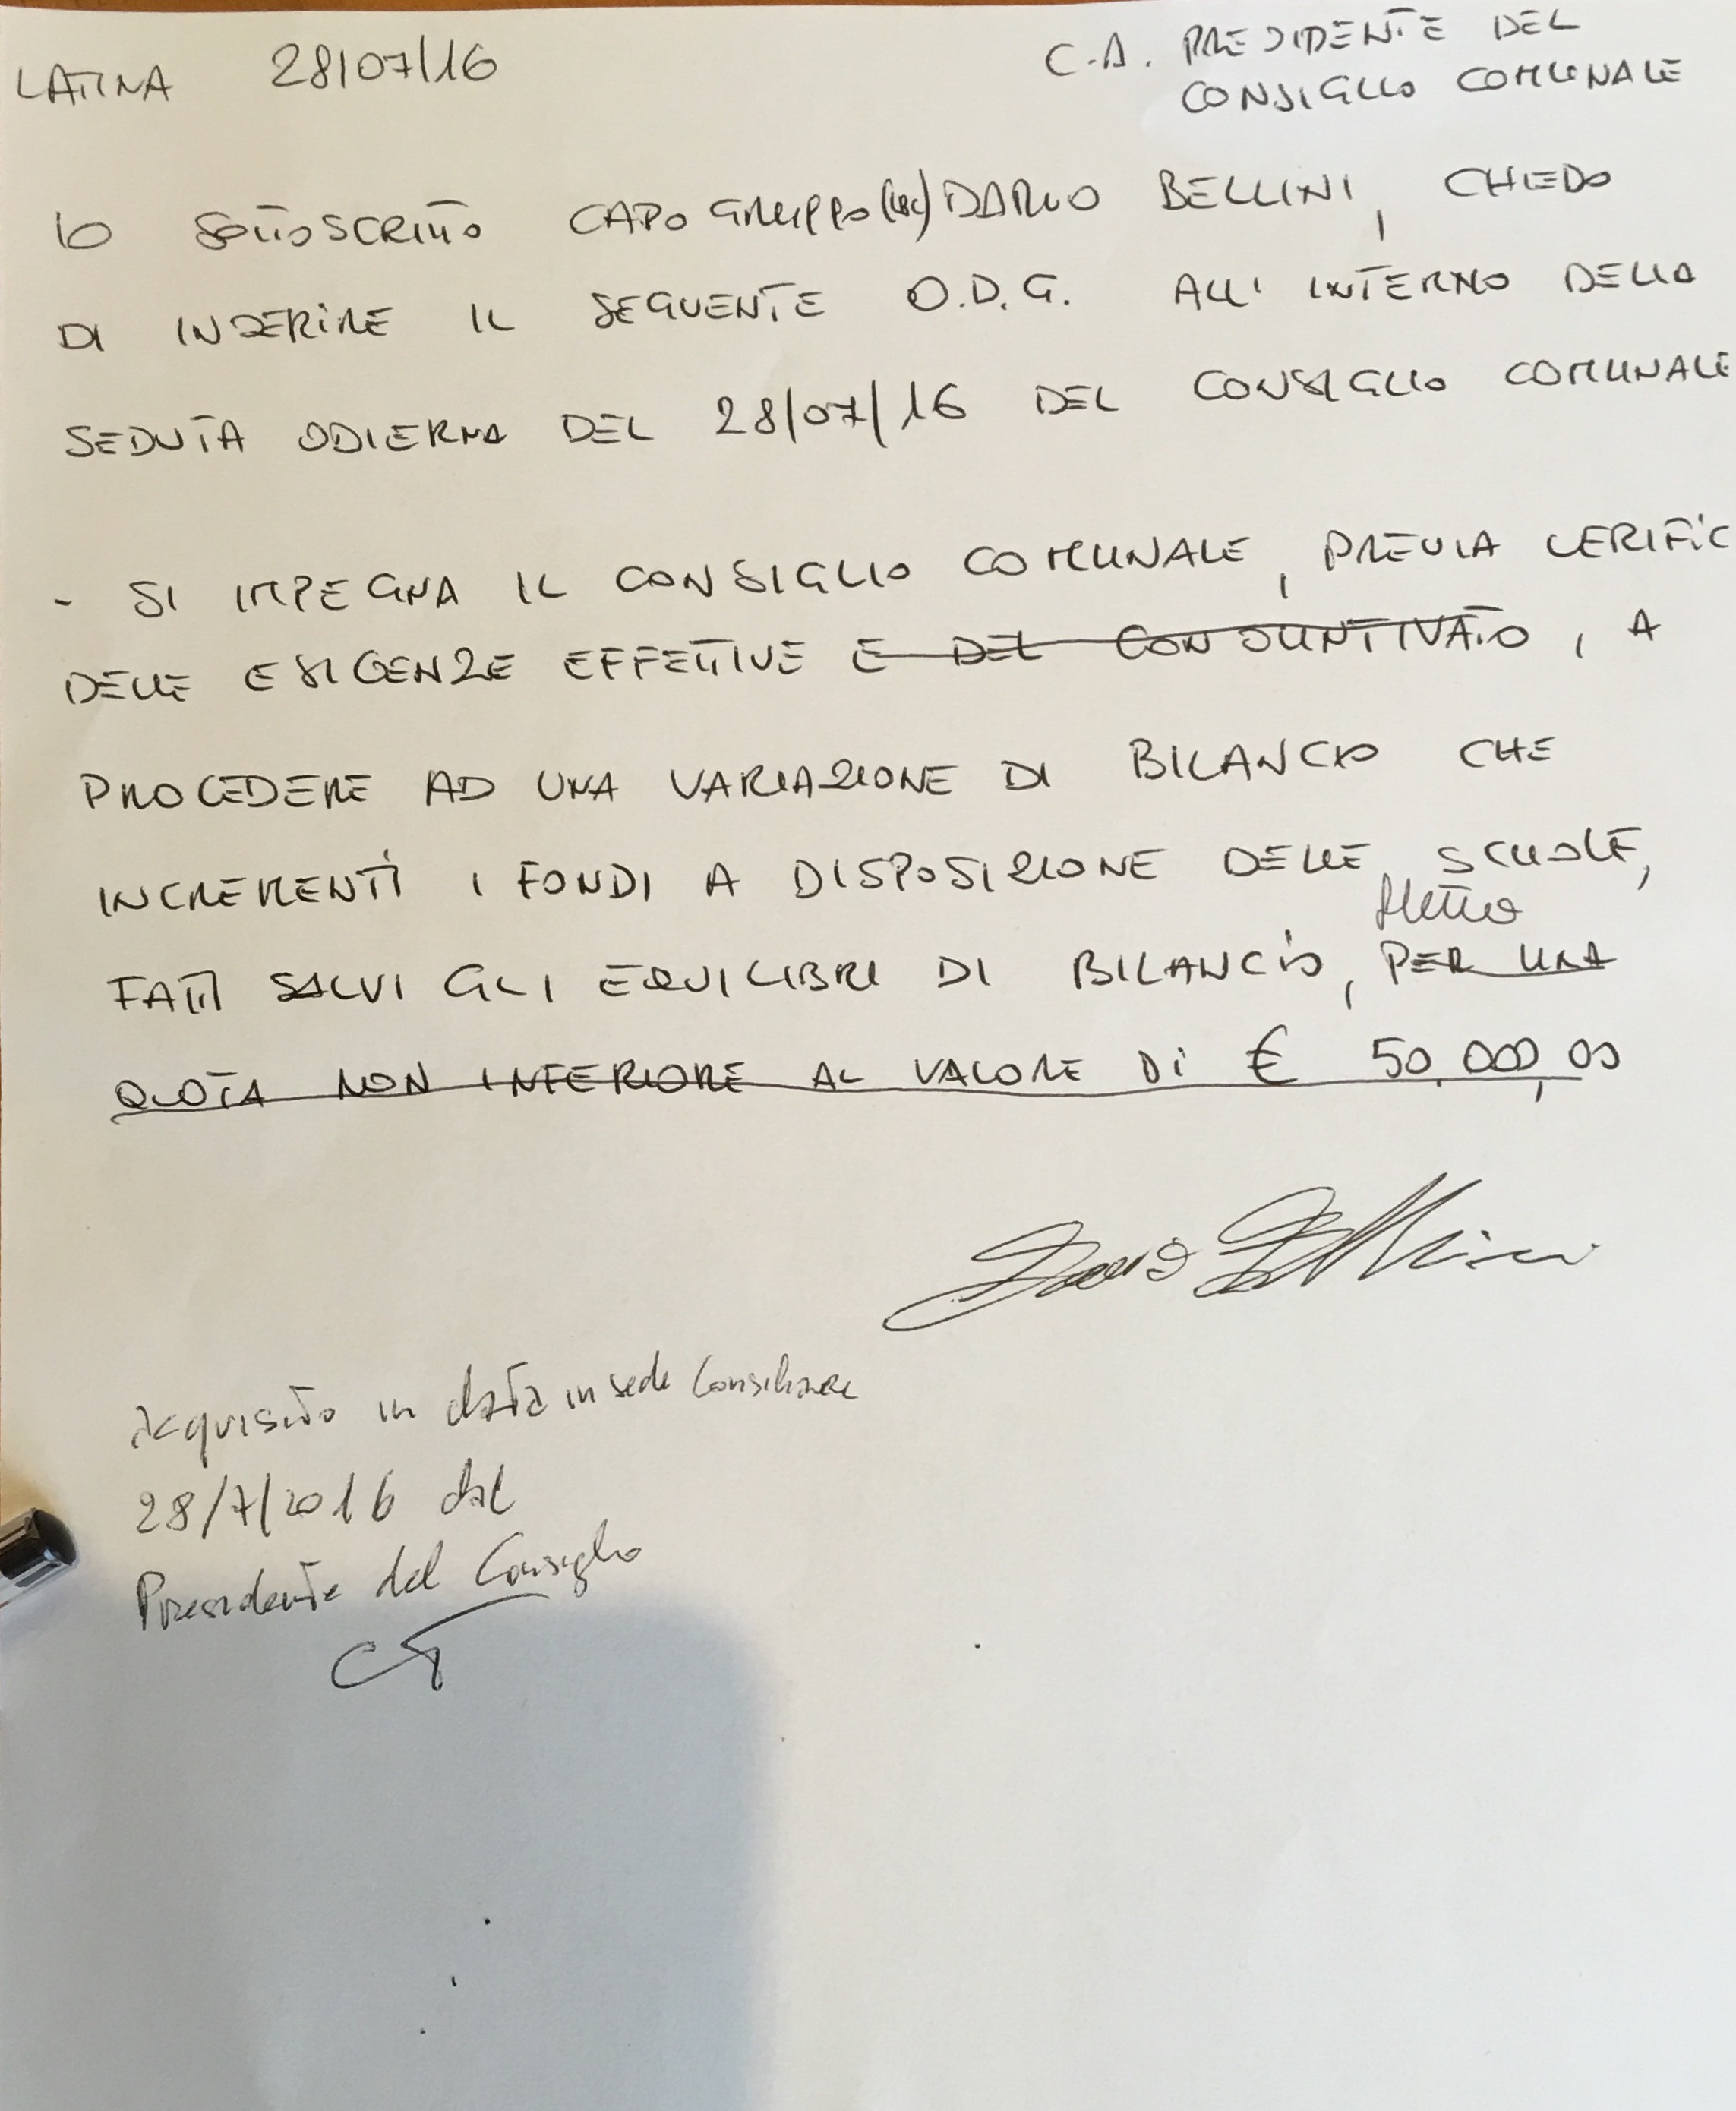 LATINA 28/07/16
C.A. PRESIDENTE DEL
CONSIGLIO COMUNALE
IO SOTTOSCRITTO CAPOGRUPPO (LBC) DARIO BELLINI, CHIEDO
DI INSERIRE IL SEGUENTE O.D.G. ALL'INTERNO DELLA
SEDUTA ODIERNA DEL 28/07/16 DEL CONSIGLIO COMUNALE
- SI IMPEGNA IL CONSIGLIO COMUNALE, PREVIA VERIFIC
DELLE ESIGENZE EFFETTIVE E DEL CONSUNTIVATO, A
PROCEDERE AD UNA VARIAZIONE DI BILANCIO CHE
INCREMENTI I FONDI A DISPOSIZIONE DELLE SCUOLE,
FATTI SALVI GLI EQUILIBRI DI BILANCIO, PER UNA
QUOTA NON INFERIORE AL VALORE DI € 50.000,00
Dario Bellini
Acquisito in data in sede Consiliare
28/7/2016 dal
Presidente del Consiglio